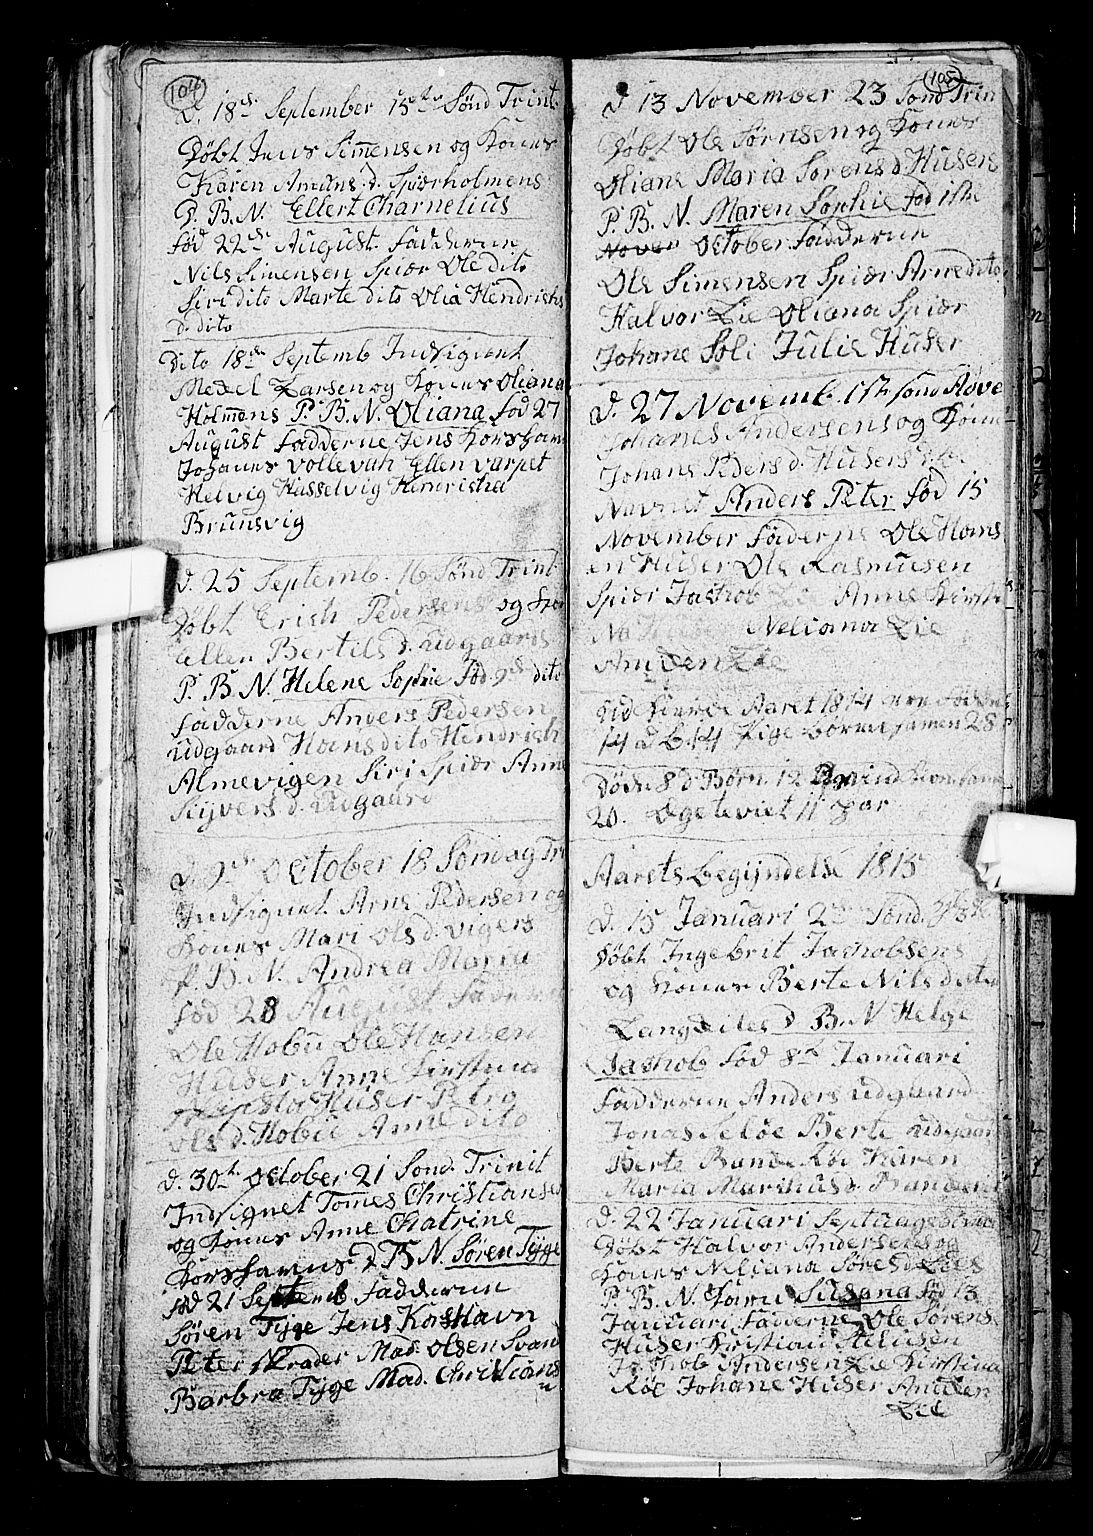 104
D. 18de September 15de Sønd Trint
Døbt Jens Simensen og Kones
Karen Amuns d. Spiørholmens
P. B. N. Ellert Charnelius
fød 22de August. Fadderne
Nils Simensen Spiør Ole dito
Siri dito Marte dito Olia Hendrichs
d. dito
Dito 18de Septemb Indsignet
Larsen og Kones Oliana
Holmens P. B. N. Oliana fød 27
August Fadderne Jens Korshavn
Johanes Vollevah Ellen Varpet
Helvig Hasselvig Henricha
Brunsvig
d. 25 Septemb. 16 Sønd Trint
Døbt Erich Pedersens og Kon
Ellen Bertils d. Udgaards
P. B. N. Helene Sophie fød 9de dito
Fadderne Anders Pedersen
Udgaard Hans dito Hendrich
Almevigen Siri Spiør Anne
Sijvers d. Udgaard
d. 9de October 18 Søndag Tr
Indsignet Arne Pedersen og
Kones Mari Ols d. Vigers
P. B. N. Andrea Maria
fød 28 August Faderne
Ole Hobu Ole Hansen
Huser Anne
Huser Petro
Ols d. Hobu Anne dito
d. 30te October 21 Sønd. Trinit
Indsignet Tomes Christiansen
og Kones Anne Chatrine
Korshamns d. B. N. Søren Tyge
fød 21 Septemb Fadderne
Søren Tyge Jens Korshavn
Peter Skrader Mad. Olsen Svan
Barbra Tyge Mad. Christians
105
d 13 November 23 Sønd Trin
Døbt Ole Sørnsen og Kones
Oliane Maria Sorens d. Husers
P. B. N. Maren Sophie fød 1ste
Nover October Fadderne
Ole Simensen Spiør Arne dito
Halvor Lie Oliana Spiør
Johane Soli Julie Huser
d. 27 Novemb. 1ste Sønd Adve
Johanes Andersens og Kone
Johans Peders d. Husers
Navnet Anders Peter fød 15
November Faderne Ole Hans
en Huser Ole Rasmusen
Spiør Jachob Lie Anne Kirsti
Na Huser Neliana Lie
Lie
Aaret 1814 ere fødde
14 d. b. 14 Pige børn samen 28
Døde 8 d. Børn 12
20. Ægteviet 11 par
Aarets begijndelse 1815
d. 15 Januari 2de Sønd.
Døbt Ingebrit Jachobsens
og Kones Berte Nils dito
Langdites d. B. N Helge
Jachob fød 8de Januari
Fadderne Anders Udgaard
Jonas Seløe Berte Udgaard
Berte Røe Karen
Maria
d. 22 Januari Septuagesima
Døbt Halvor Andersens og
Kones Neliana Søres d. Lies
P. B. N. Susana fød 13
Januari Faderne Ole Sørens
Huser Kristian
Jachob Andersen Lie Kirstina
Røe Johane Huser
Lie